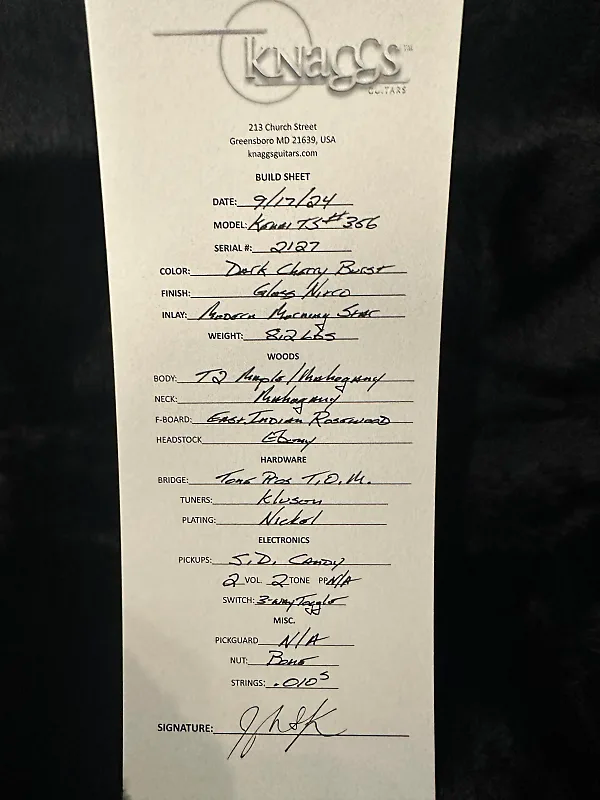 Knaggs™
GUITARS
213 Church Street
Greensboro MD 21639, USA
knaggsguitars.com
BUILD SHEET
DATE: 9/17/24
MODEL: Kenai TS #356
SERIAL #: 2127
COLOR: Dark Cherry Burst
FINISH: Gloss Nitro
INLAY: Modern Morning Star
WEIGHT: 8.2 LBS
WOODS
BODY: T2 Maple/Mahogany
NECK: Mahogany
F-BOARD: East Indian Rosewood
HEADSTOCK Ebony
HARDWARE
BRIDGE: Tone Pros T.O.M.
TUNERS: Kluson
PLATING: Nickel
ELECTRONICS
PICKUPS: S.D. Candy
2 VOL. 2 TONE PP N/A
SWITCH: 3-way Toggle
MISC.
PICKGUARD N/A
NUT: Bone
STRINGS: .010s
SIGNATURE: